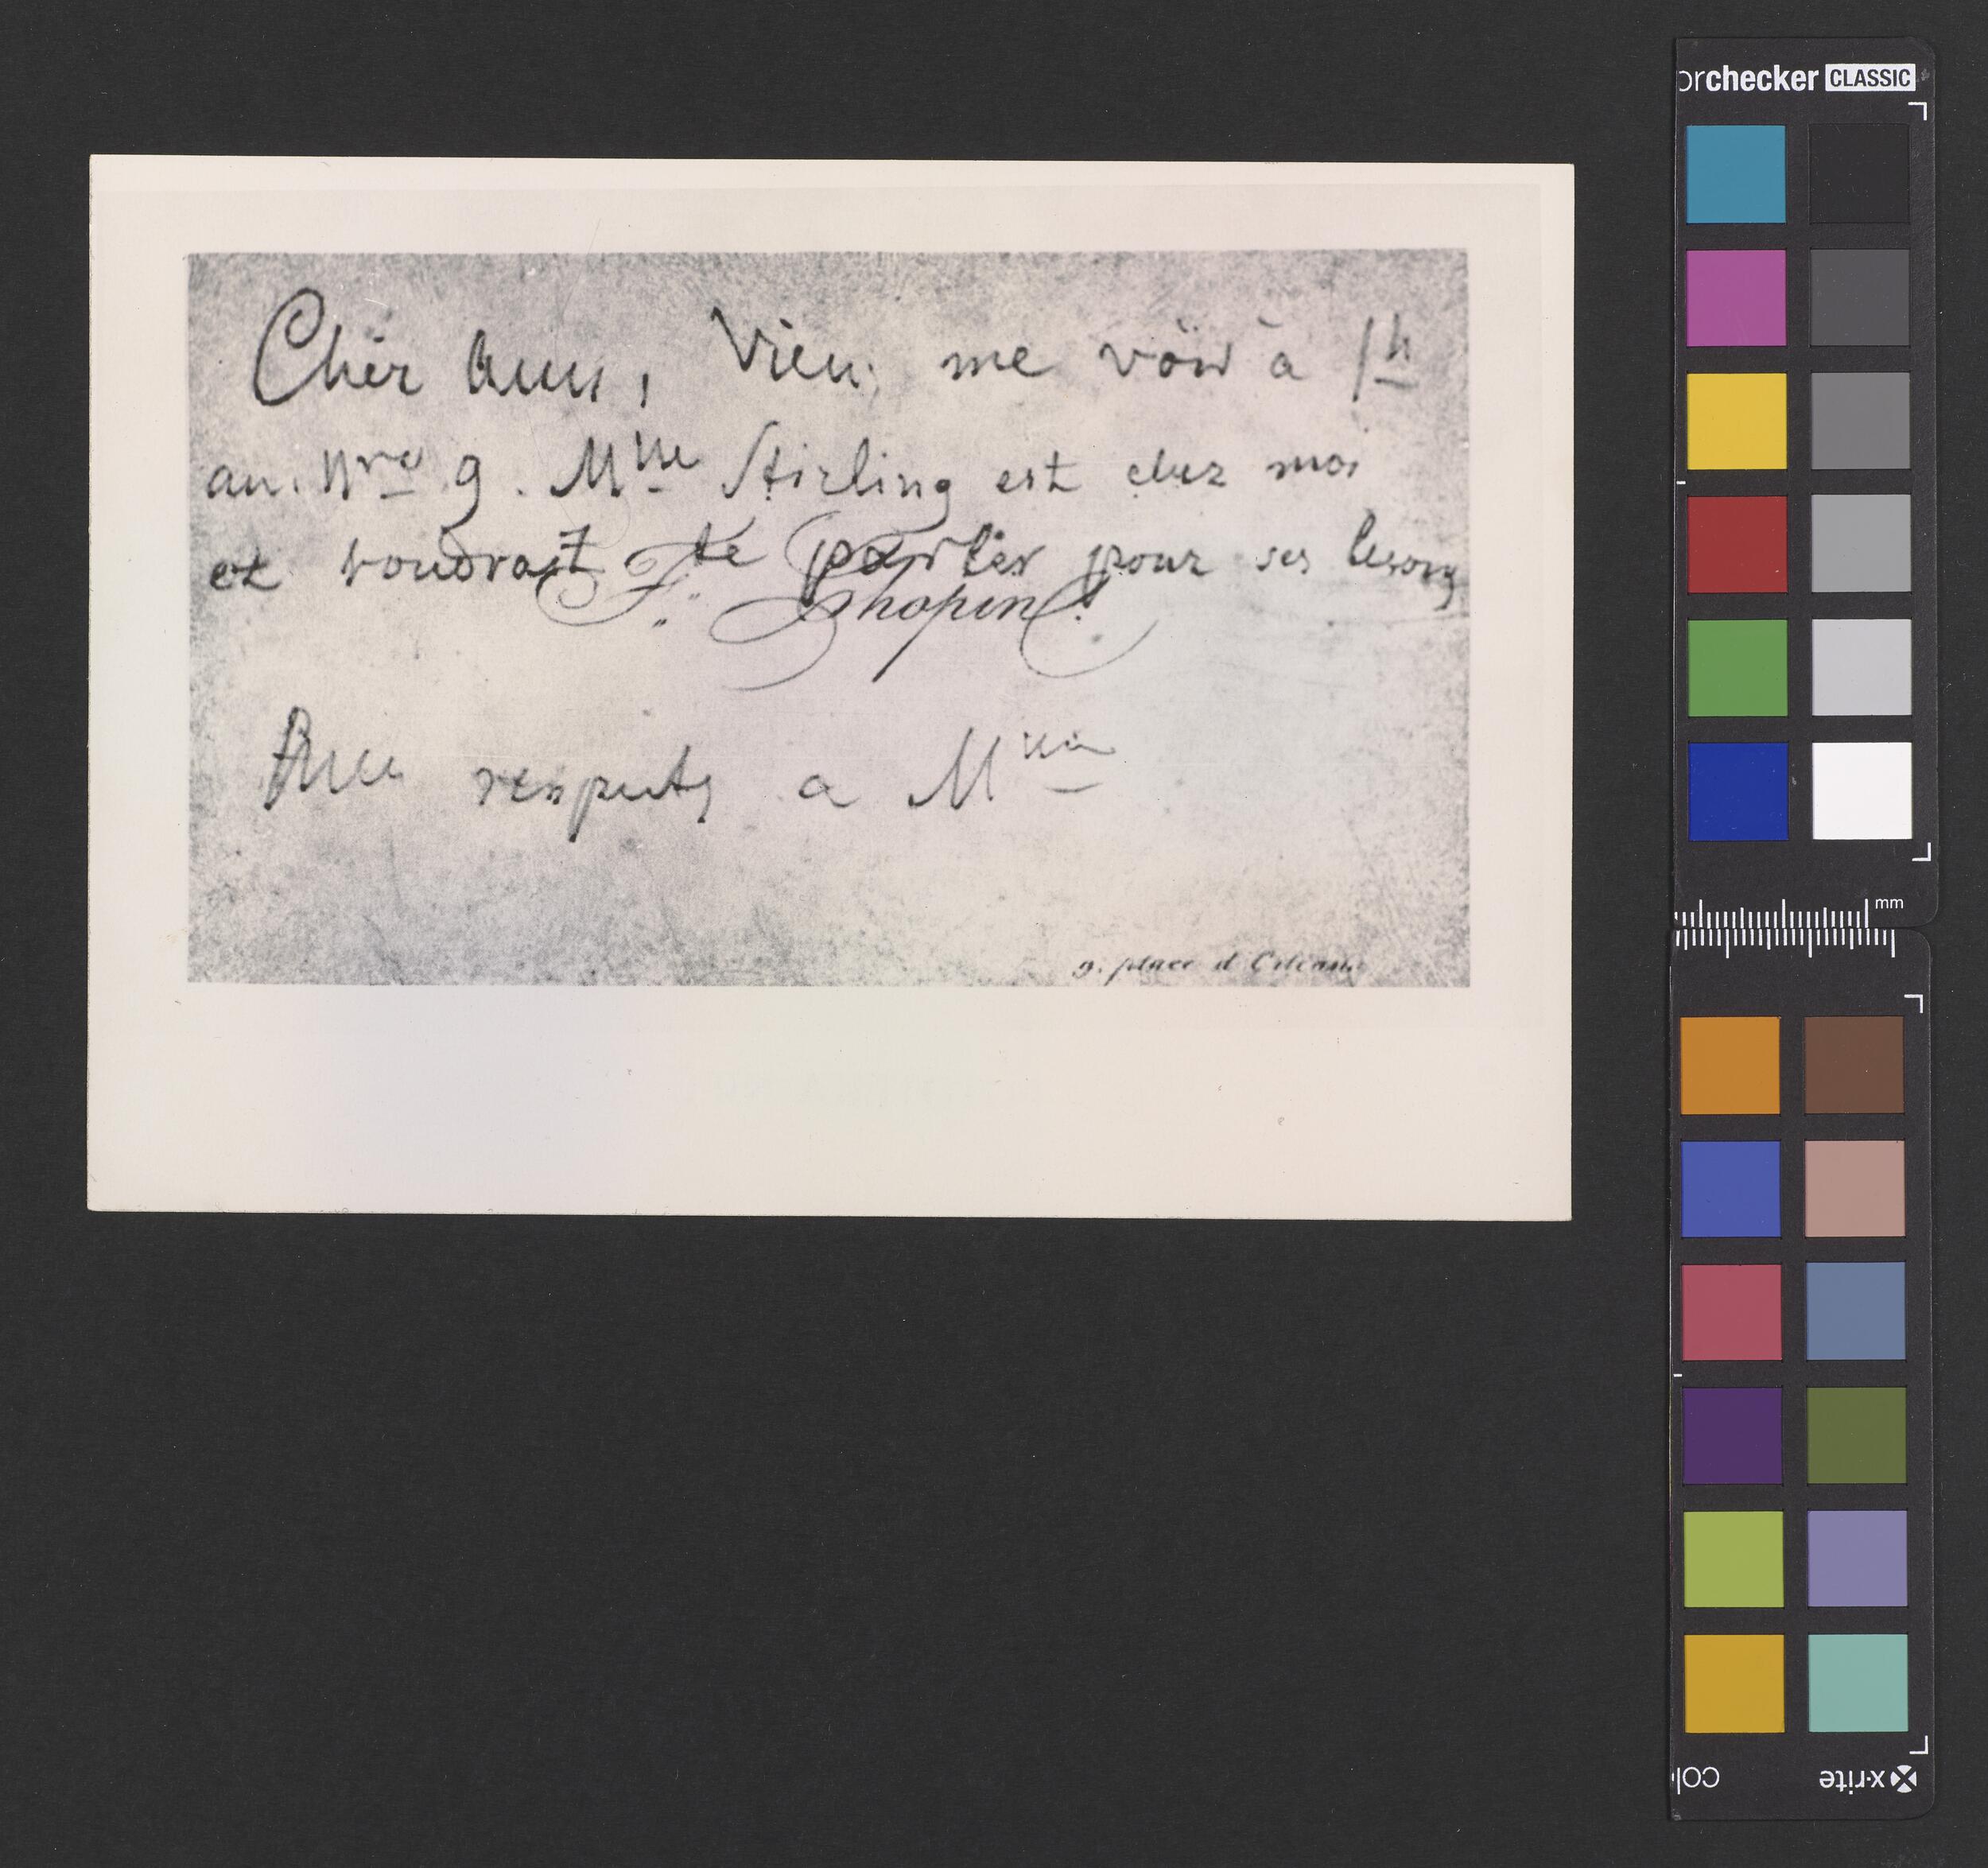 Cher ami, Viens me voir à 1h
au Nro 9. Mlle Stirling est chez moi
et voudrait te parler pour ses leçons
F. Chopin.
respects a Mme
9. place d'Orléans
orchecker CLASSIC
mm
x-rite
col